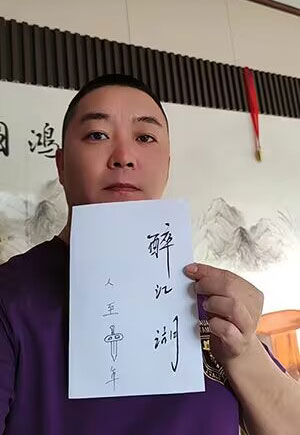 鸿
醉江湖
人至中年